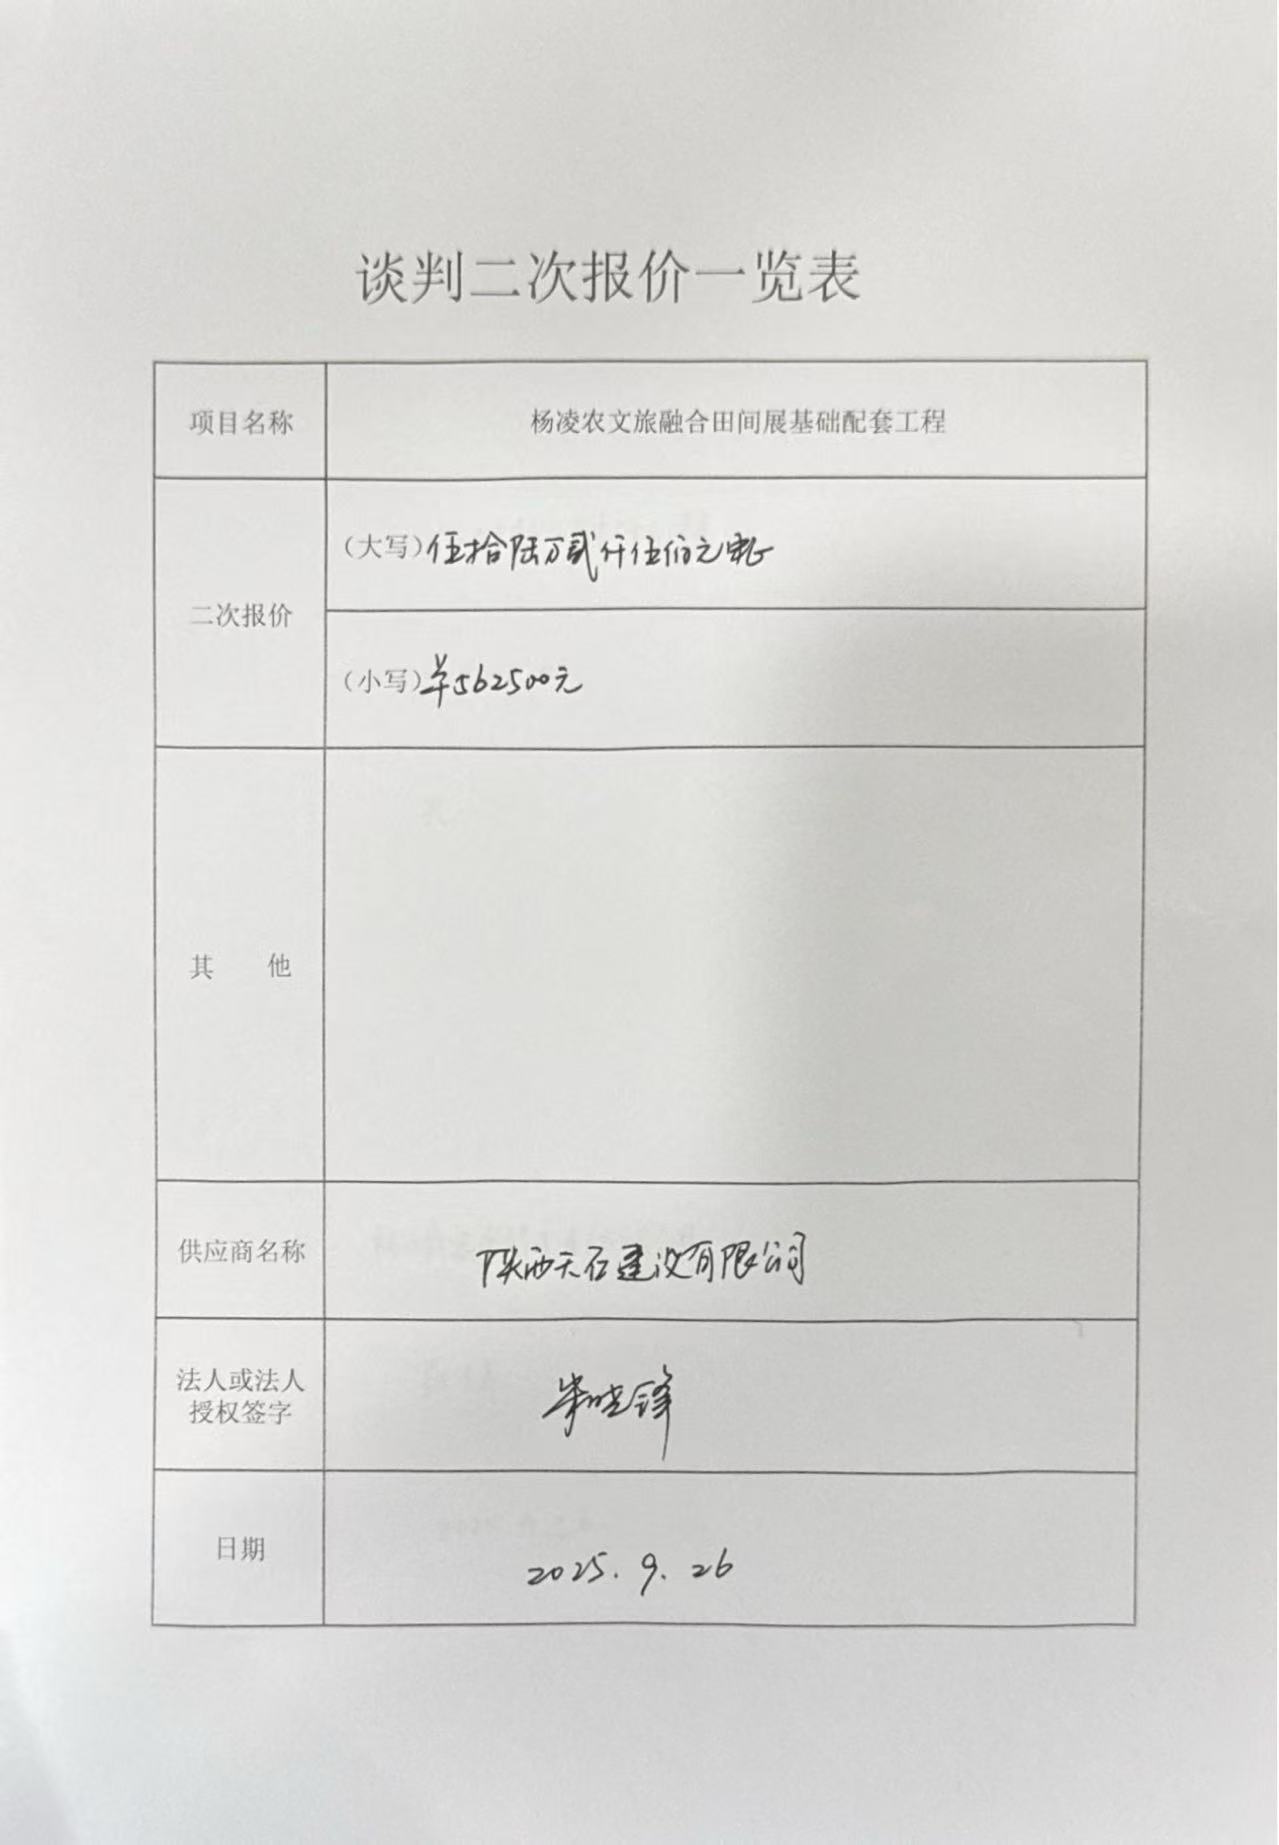 谈判二次报价一览表
项目名称
杨凌农文旅融合田间展基础配套工程
二次报价
（大写）伍拾陆万贰仟伍佰元整
（小写）¥562500元
其 他
供应商名称
陕西天石建设有限公司
法人或法人
授权签字
朱晓锋
日期
2025.9.26